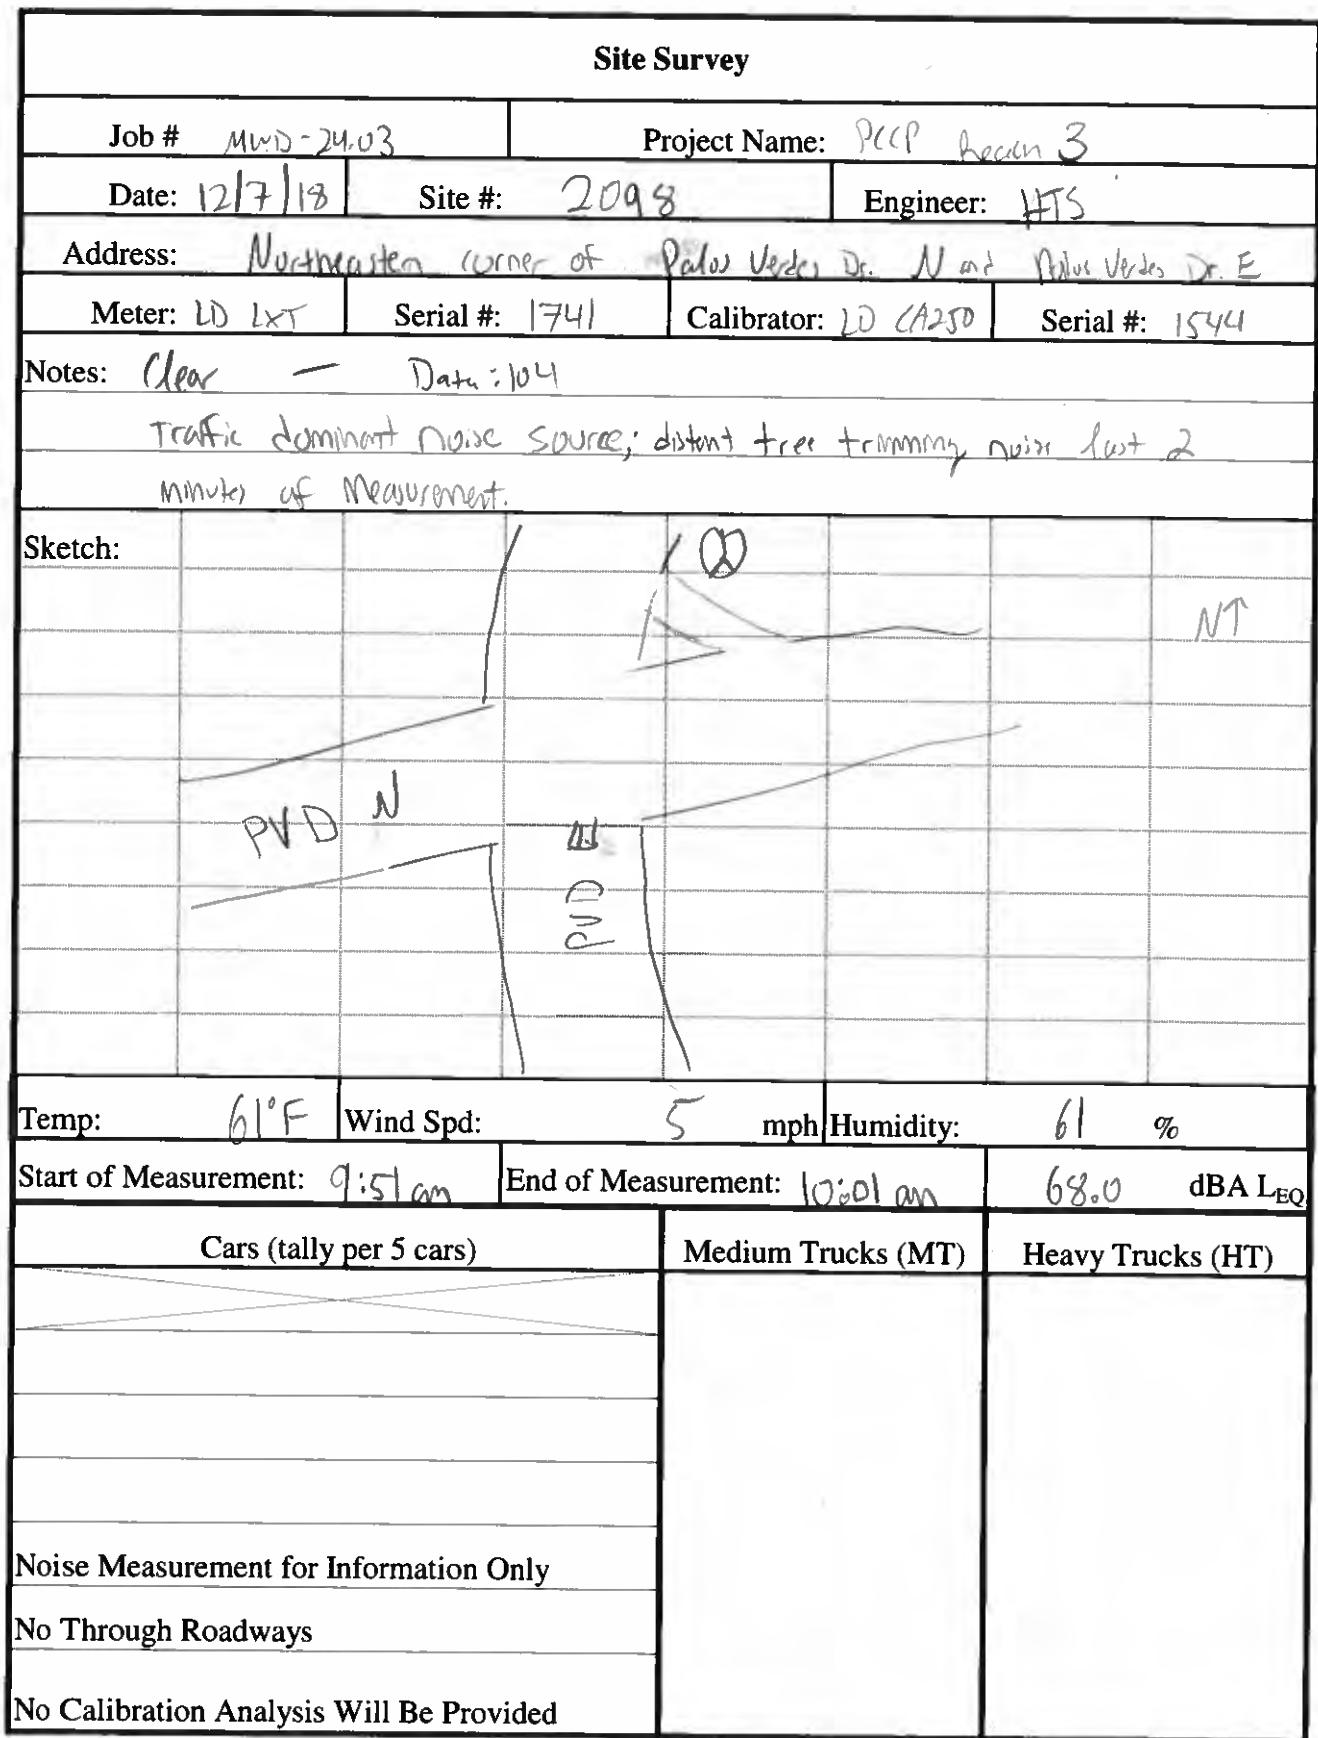 Site Survey
Job # MWD-24.03 Project Name: PCCP Reach 3
Date: 12/7/18 Site #: 2098 Engineer: HTS
Address: Northeastern corner of Palos Verdes Dr. N and Palos Verdes Dr. E
Meter: LD LXT Serial #: 1741 Calibrator: LD CA250 Serial #: 1544
Notes: Clear — Data: 104
Traffic dominant noise source; distant tree trimming noise last 2
minutes of measurement.
Sketch:
N↑
PVD N
PVD E
Temp: 61°F Wind Spd: 5 mph Humidity: 61 %
Start of Measurement: 9:51 am End of Measurement: 10:01 am 68.0 dBA LEQ
Cars (tally per 5 cars) Medium Trucks (MT) Heavy Trucks (HT)
Noise Measurement for Information Only
No Through Roadways
No Calibration Analysis Will Be Provided